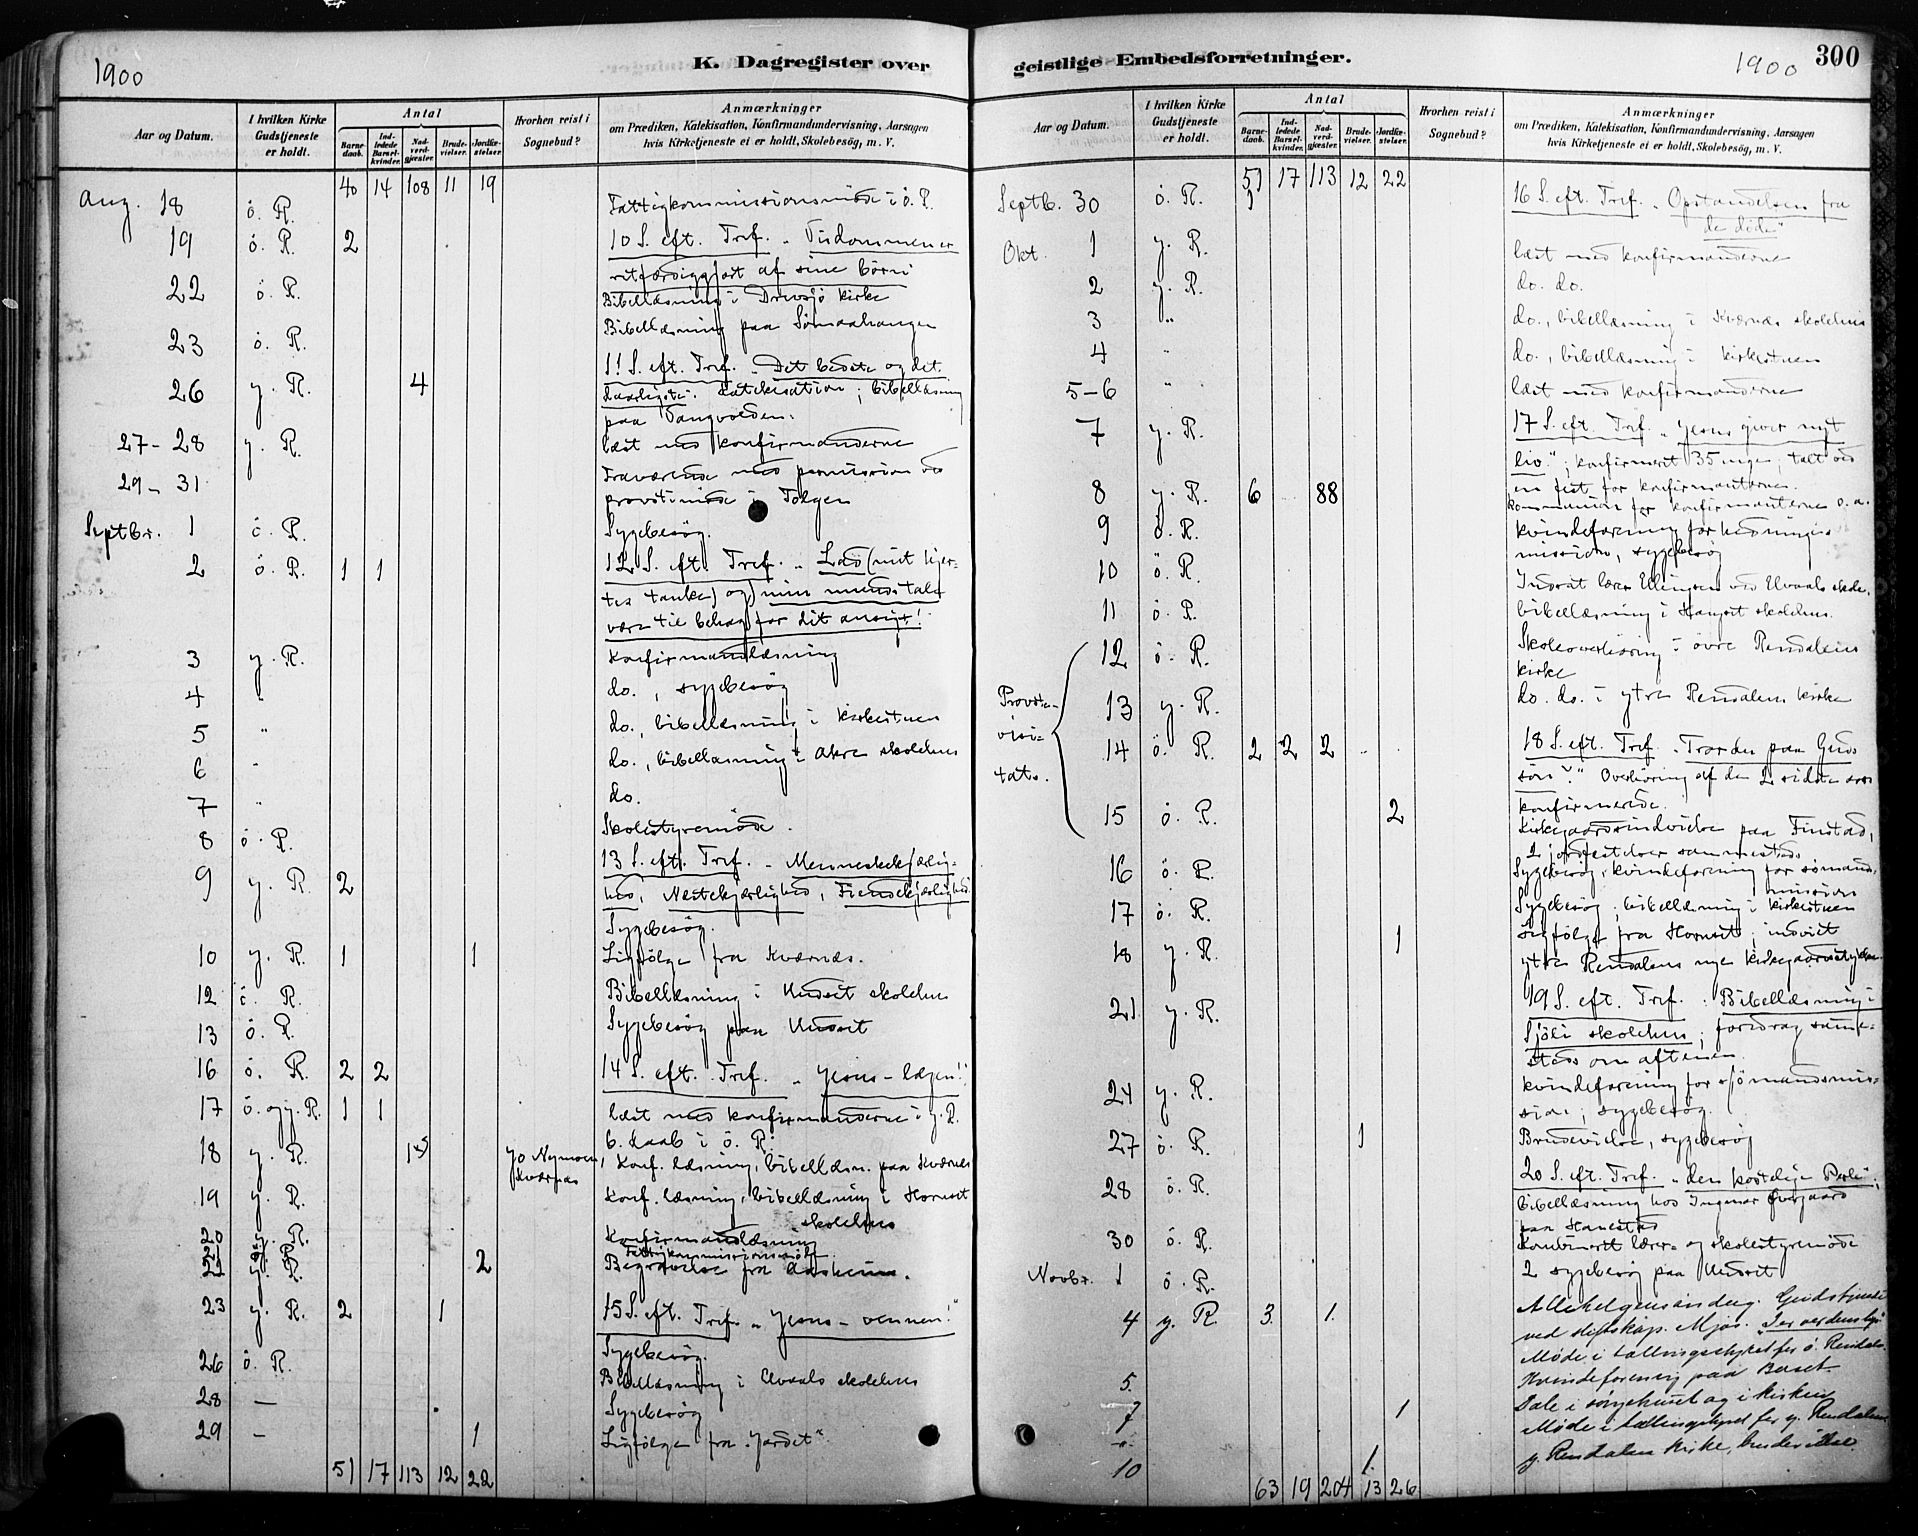 1900
K. Dagregister over
Aar og Datum.
I hvilken Kirke Gudstjeneste er holdt.
Antal
Barnedaab.
Indledede Barselkvinder.
Nadverdgjæster.
Brudevielser.
Jordfæstelser.
Hvorhen reist i Sognebud?
Anmærkninger
om Prædiken, Katekisation, Konfirmandundervisning, Aarsagen
hvis Kirketjeneste ei er holdt, Skolebesøg, m. V.
40 14 108 11 19
Aug. 18 ö. R. Fattigkommissionsmöde i ö. R.
19 ö. R. 2 10 S. eft. Tref. "Visdommen er
retfærdiggjort af sine börn"
22 ö. R. Bibellæsning i Drevsjö kirke
23 ö. R. Bibellæsning paa Sömaahaugen
26 y. R. 4 11 S. eft. Tref. "Det bedste og det
daarligste". Katekisation; bibellæsning
paa Vangvolden.
27-28 y. R. læst med konfirmanderne
29-31 Fraværende med permission ved
provstimöde i Tolgen
Septbr. 1 ö. R. Sygebesög.
2 ö. R. 1 1 12 S. eft. Tref. "Lad (mit hjer-
tes tanke) og) min munds tale
være til behag for dit ansigt!
3 y. R. Konfirmandlæsning
4 " do., sygebesög
5 " do., bibellæsning i kirkestuen
6 " do., bibellæsning i Akre skolehus
7 " do.
8 ö. R. Skolestyremöde.
9 y. R. 2 13 S. eft. Tref. "Menneskekjærlig-
hed, Næstekjærlighed, Fiendekjærlighed.
Sygebesög.
10 y. R. 1 1 Ligfölge fra Kværnæs.
12 ö. R. Bibellæsning i Undset skolehus
13 ö. R. Sygebesög paa Undset
16 ö. R. 2 2 14 S. eft. Tref. "Jesus – lægen!"
17 ö. og y. R. 1 1 læst med konfirmanderne i y. R.
b. daab i ö. R.
18 y. R. Jo Nymoen, Kværnæs Konf. læsning, bibellæsn. paa Kværnæs
19 y. R. Konf. læsning, bibellæsning i Hornset
skolehus
20 y. R. Konfirmandlæsning
Fattigkommissionsmöde
22 y. R. 2 Begravelse fra Aasheim.
23 y. R. 2 1 15 S. eft. Tref. "Jesus – vennen!"
26 ö. R. Sygebesög.
28 — Bibellæsning i Elvaals skolehus
Sygebesög
29 — 1 Ligfölge fra "Jordet"
51 17 113 12 22
geistlige Embedsforretninger.
1900
300
Aar og Datum.
I hvilken Kirke Gudstjeneste er holdt.
Antal
Barnedaab.
Indledede Barselkvinder.
Nadverdgjæster.
Brudevielser.
Jordfæstelser.
Hvorhen reist i Sognebud?
Anmærkninger
om Prædiken, Katekisation, Konfirmandundervisning, Aarsagen
hvis Kirketjeneste ei er holdt, Skolebesøg, m. V.
51 17 113 12 22
Septb. 30 ö. R. 16 S. eft. Tref. "Opstandelsen fra
de döde"
Okt. 1 y. R. læst med konfirmanderne
2 y. R. do. do.
3 " do., bibellæsning i Kværnæs skolehus
4 " do., bibellæsning i kirkestuen
5-6 " læst med konfirmanderne
7 y. R. 17 S. eft. Tref. "Jesus giver nyt
liv."; konfirmeret 35 unge; talt ved
en fest for konfirmanterne.
8 y. R. 6 88 kommunion for konfirmanterne o. a.
9 ö. R. kvindeforening for hednings-
mission, sygebesög
10 ö. R. Indsat lærer Ellingsen ved Elvaals skole.
11 ö. R. bibellæsning i Haugset skolehus.
Provstevisitats.
12 ö. R. Skoleoverhöring i övre Rendalens
kirke
13 y. R. do. do. i ytre Rendalens kirke
14 ö. R. 2 2 2 18 S. eft. Tref. "Tror du paa Guds
sön?" Overhöring af de 2 sidste aars
konfirmerede.
15 ö. R. 2 Kirkegaardsindvielse paa Finstad,
2 jordfæstelser sammesteds
16 ö. R. Sygebesög, kvindeforening for sömands-
mission
17 ö. R. Sygebesög, bibellæsning i kirkestuen
18 y. R. 1 Ligfölge fra Hornset; indviet
ytre Rendalens nye kirkegaardsstykke.
21 y. R. 19 S. eft. Tref. : Bibellæsning i
Sjöli skolehus; foredrag samme-
steds om aftenen.
24 y. R. kvindeforening for sjömandsmis-
sion; sygebesög.
27 ö. R. 1 Brudevielse, sygebesög
28 ö. R. 20 S. eft. Tref. "den kostelige Perle",
bibellæsning hos Ingmar Övergaard
paa Hanestad
30 ö. R. Kombinert lærer- og skolestyremöde
Novbr. 1 ö. R. 2 sygebesög paa Undset
4 y. R. 3 1 Allehelgensöndag. Gudstjeneste
ved stiftskap. Mjös. "Jesu verdens lys"
Møde i tællingsstyret for ö. Rendalen
5. Kvindeforening paa Berset
7 1 Tale i sørgehuset og i kirken
Møde i tællingsstyret for y. Rendalen
10 1 y. Rendalen kirke, brudevielse.
63 19 204 13 26